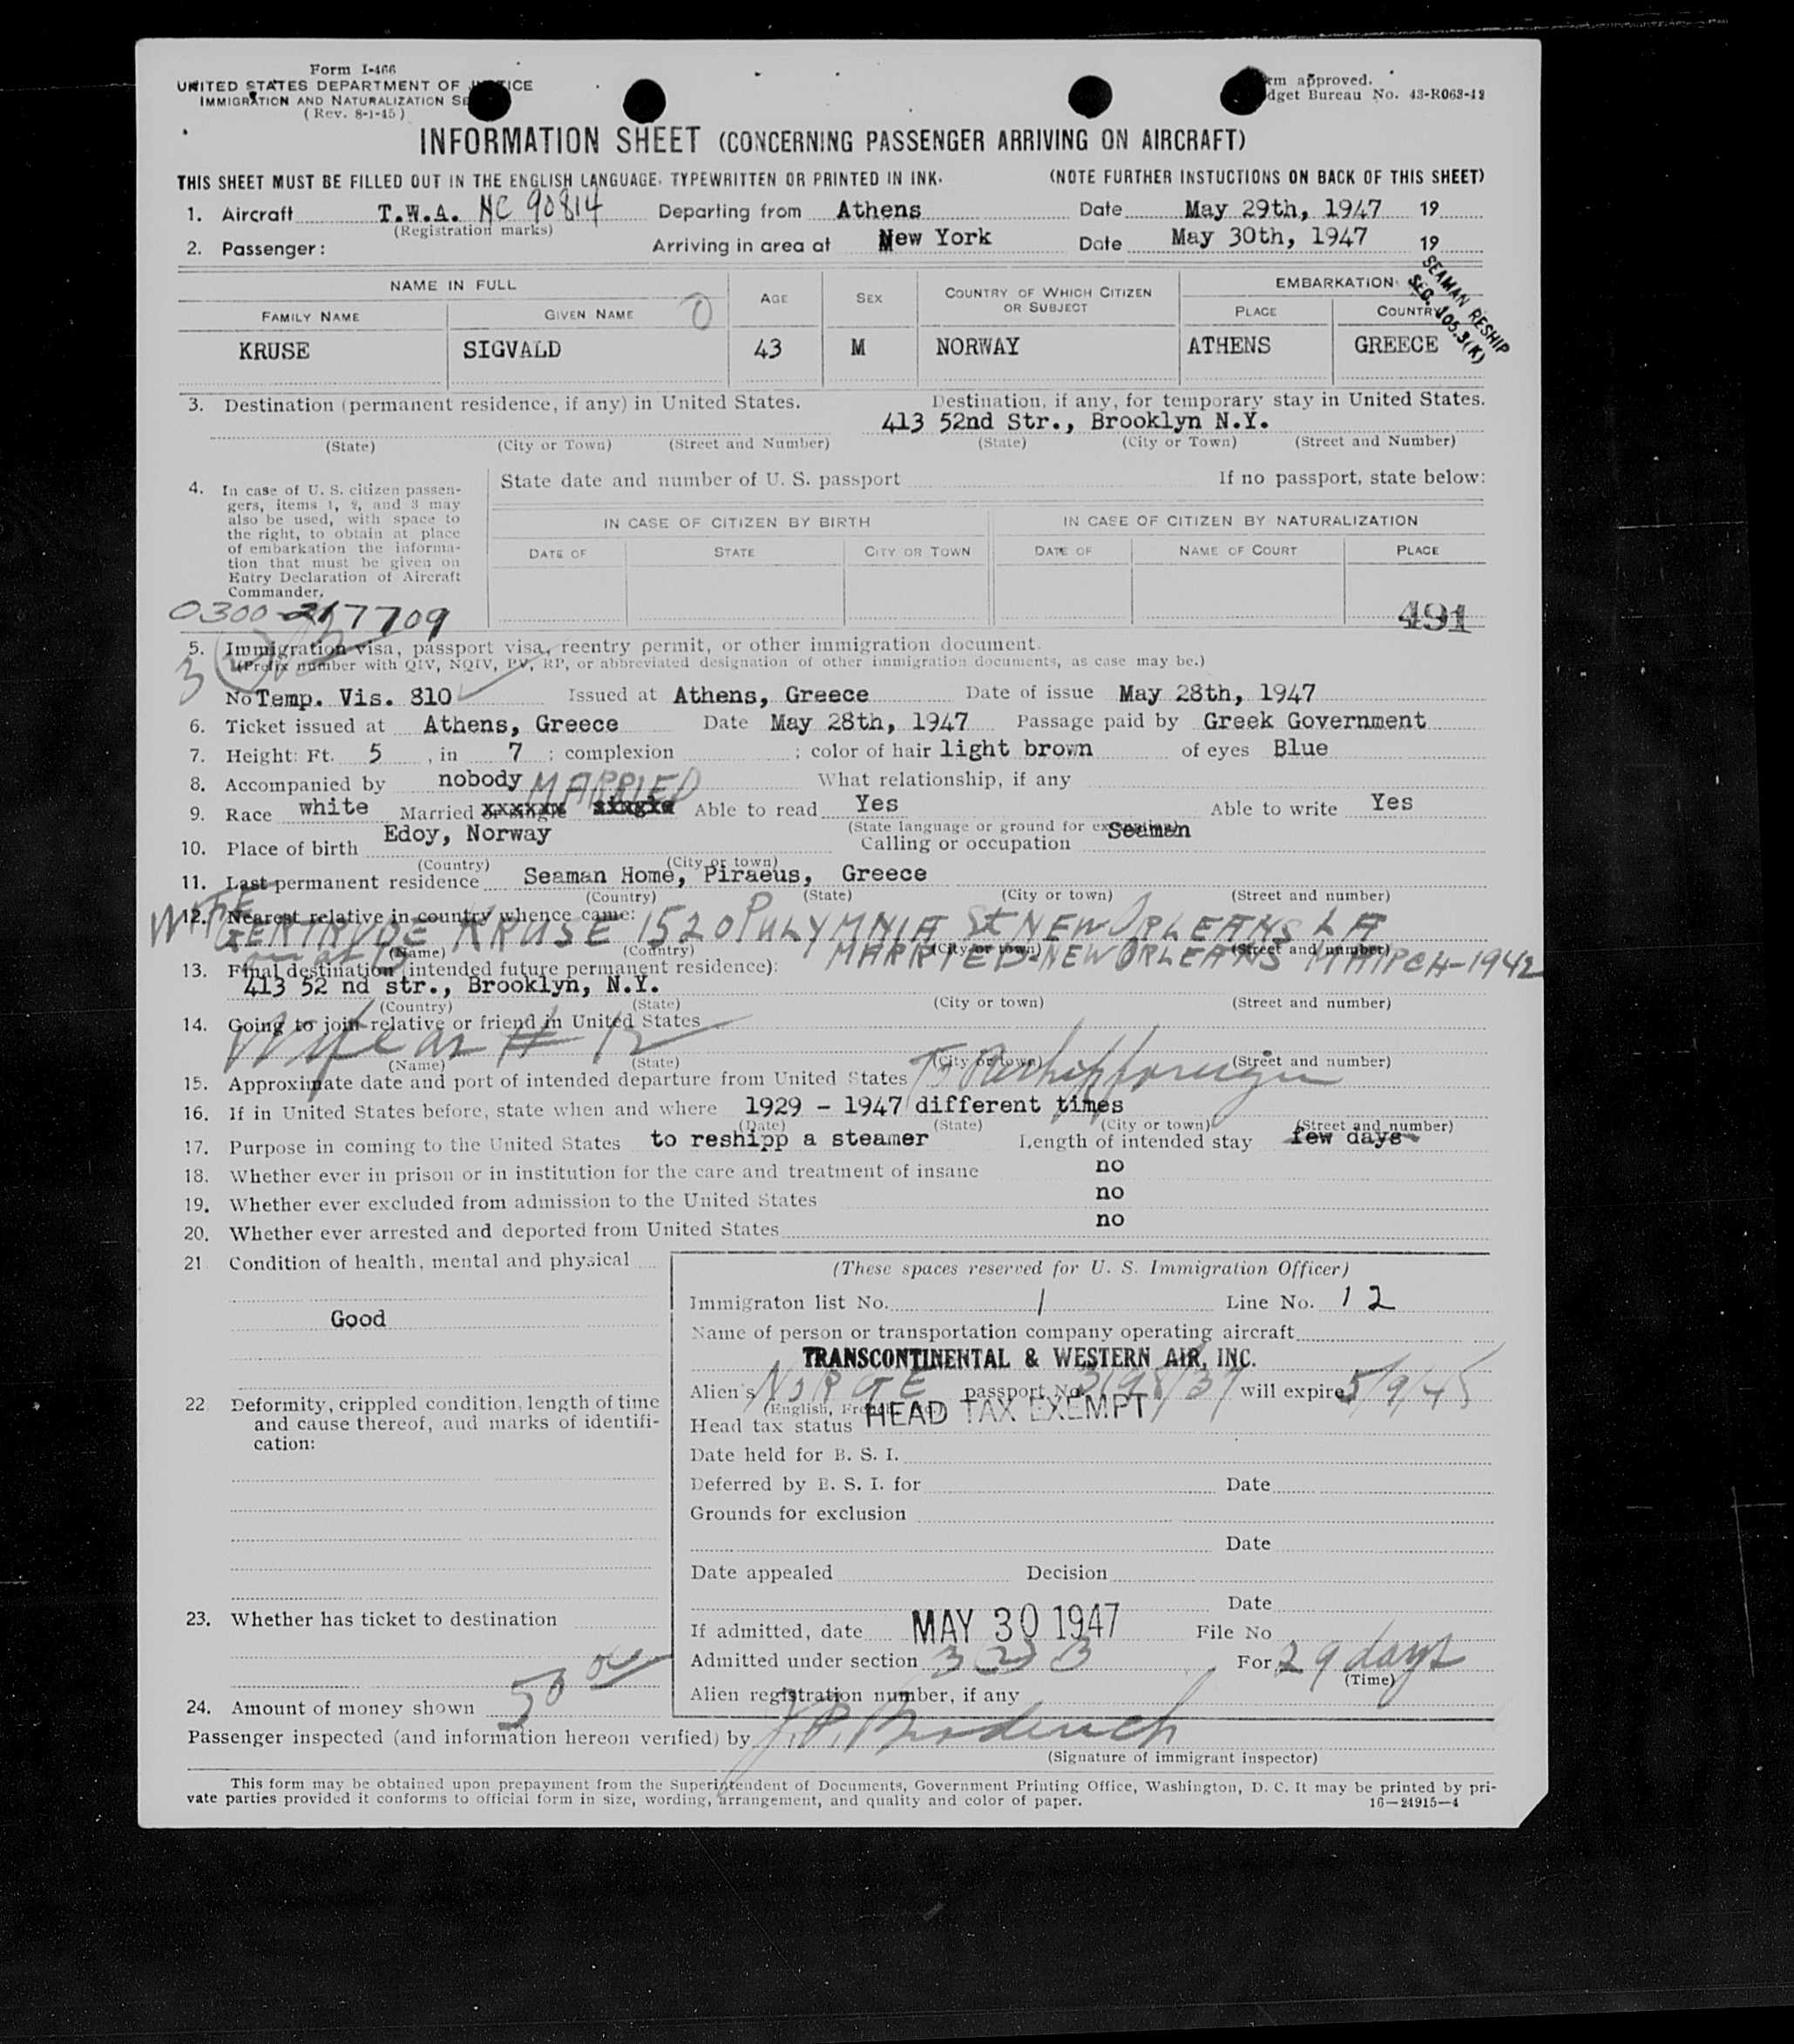 Form I-466
UNITED STATES DEPARTMENT OF JUSTICE
IMMIGRATION AND NATURALIZATION SE
(Rev. 8-1-45)
rm approved.
dget Bureau No. 43-R063-42
INFORMATION SHEET (CONCERNING PASSENGER ARRIVING ON AIRCRAFT)
THIS SHEET MUST BE FILLED OUT IN THE ENGLISH LANGUAGE. TYPEWRITTEN OR PRINTED IN INK. (NOTE FURTHER INSTUCTIONS ON BACK OF THIS SHEET)
1. Aircraft T.W.A. NC 90814 Departing from Athens Date May 29th, 1947 19
(Registration marks)
2. Passenger: Arriving in area at New York Date May 30th, 1947 19
SEAMAN RESHIP
SEC. 105.3(K)
NAME IN FULL AGE SEX COUNTRY OF WHICH CITIZEN OR SUBJECT EMBARKATION
FAMILY NAME GIVEN NAME 0 PLACE COUNTRY
KRUSE SIGVALD 43 M NORWAY ATHENS GREECE
3. Destination (permanent residence, if any) in United States. Destination, if any, for temporary stay in United States.
413 52nd Str., Brooklyn N.Y.
(State) (City or Town) (Street and Number) (State) (City or Town) (Street and Number)
4. In case of U. S. citizen passen-
gers, items 1, 2, and 3 may
also be used, with space to
the right, to obtain at place
of embarkation the informa-
tion that must be given on
Entry Declaration of Aircraft
Commander.
State date and number of U. S. passport If no passport, state below:
IN CASE OF CITIZEN BY BIRTH IN CASE OF CITIZEN BY NATURALIZATION
DATE OF STATE CITY OR TOWN DATE OF NAME OF COURT PLACE
0300 7709
491
5. Immigration visa, passport visa, reentry permit, or other immigration document.
(Prefix number with QIV, NQIV, PV, RP, or abbreviated designation of other immigration documents, as case may be.)
3
No Temp. Vis. 810 Issued at Athens, Greece Date of issue May 28th, 1947
6. Ticket issued at Athens, Greece Date May 28th, 1947 Passage paid by Greek Government
7. Height: Ft. 5, in 7; complexion ; color of hair light brown of eyes Blue
8. Accompanied by nobody What relationship, if any
MARRIED
9. Race white Married or single xxxxxx single Able to read Yes Able to write Yes
(State language or ground for exemption)
10. Place of birth Edoy, Norway Calling or occupation Seaman
(Country) (City or town)
11. Last permanent residence Seaman Home, Piraeus, Greece
(Country) (State) (City or town) (Street and number)
12. Nearest relative in country whence came:
WIFE GERTRUDE KRUSE 1520 PULYMNIA St NEW ORLEANS LA
(Name) (Country) (City or town) (Street and number)
MARRIED-NEW ORLEANS MARCH-1942
13. Final destination (intended future permanent residence):
413 52 nd str., Brooklyn, N.Y.
(Country) (State) (City or town) (Street and number)
14. Going to join relative or friend in United States
Wife as # 12
(Name) (State) (City or town) (Street and number)
15. Approximate date and port of intended departure from United States To Reship foreign
16. If in United States before, state when and where 1929 - 1947 different times
(Date) (State) (City or town) (Street and number)
17. Purpose in coming to the United States to reshipp a steamer Length of intended stay few days
18. Whether ever in prison or in institution for the care and treatment of insane no
19. Whether ever excluded from admission to the United States no
20. Whether ever arrested and deported from United States no
21 Condition of health, mental and physical
Good
22 Deformity, crippled condition, length of time
and cause thereof, and marks of identifi-
cation:
23. Whether has ticket to destination
24. Amount of money shown 50 00
(These spaces reserved for U. S. Immigration Officer)
Immigraton list No. 1 Line No. 12
Name of person or transportation company operating aircraft
TRANSCONTINENTAL & WESTERN AIR, INC.
Alien's NORGE passport No. 3198/37 will expire 5/9/45
(English, French, etc.)
Head tax status HEAD TAX EXEMPT
Date held for B. S. I.
Deferred by B. S. I. for Date
Grounds for exclusion
Date
Date appealed Decision
Date
If admitted, date MAY 30 1947 File No
Admitted under section 3 For 29 days
(Time)
Alien registration number, if any
Passenger inspected (and information hereon verified) by J.P.
(Signature of immigrant inspector)
This form may be obtained upon prepayment from the Superintendent of Documents, Government Printing Office, Washington, D. C. It may be printed by pri-
vate parties provided it conforms to official form in size, wording, arrangement, and quality and color of paper. 16—24915—4